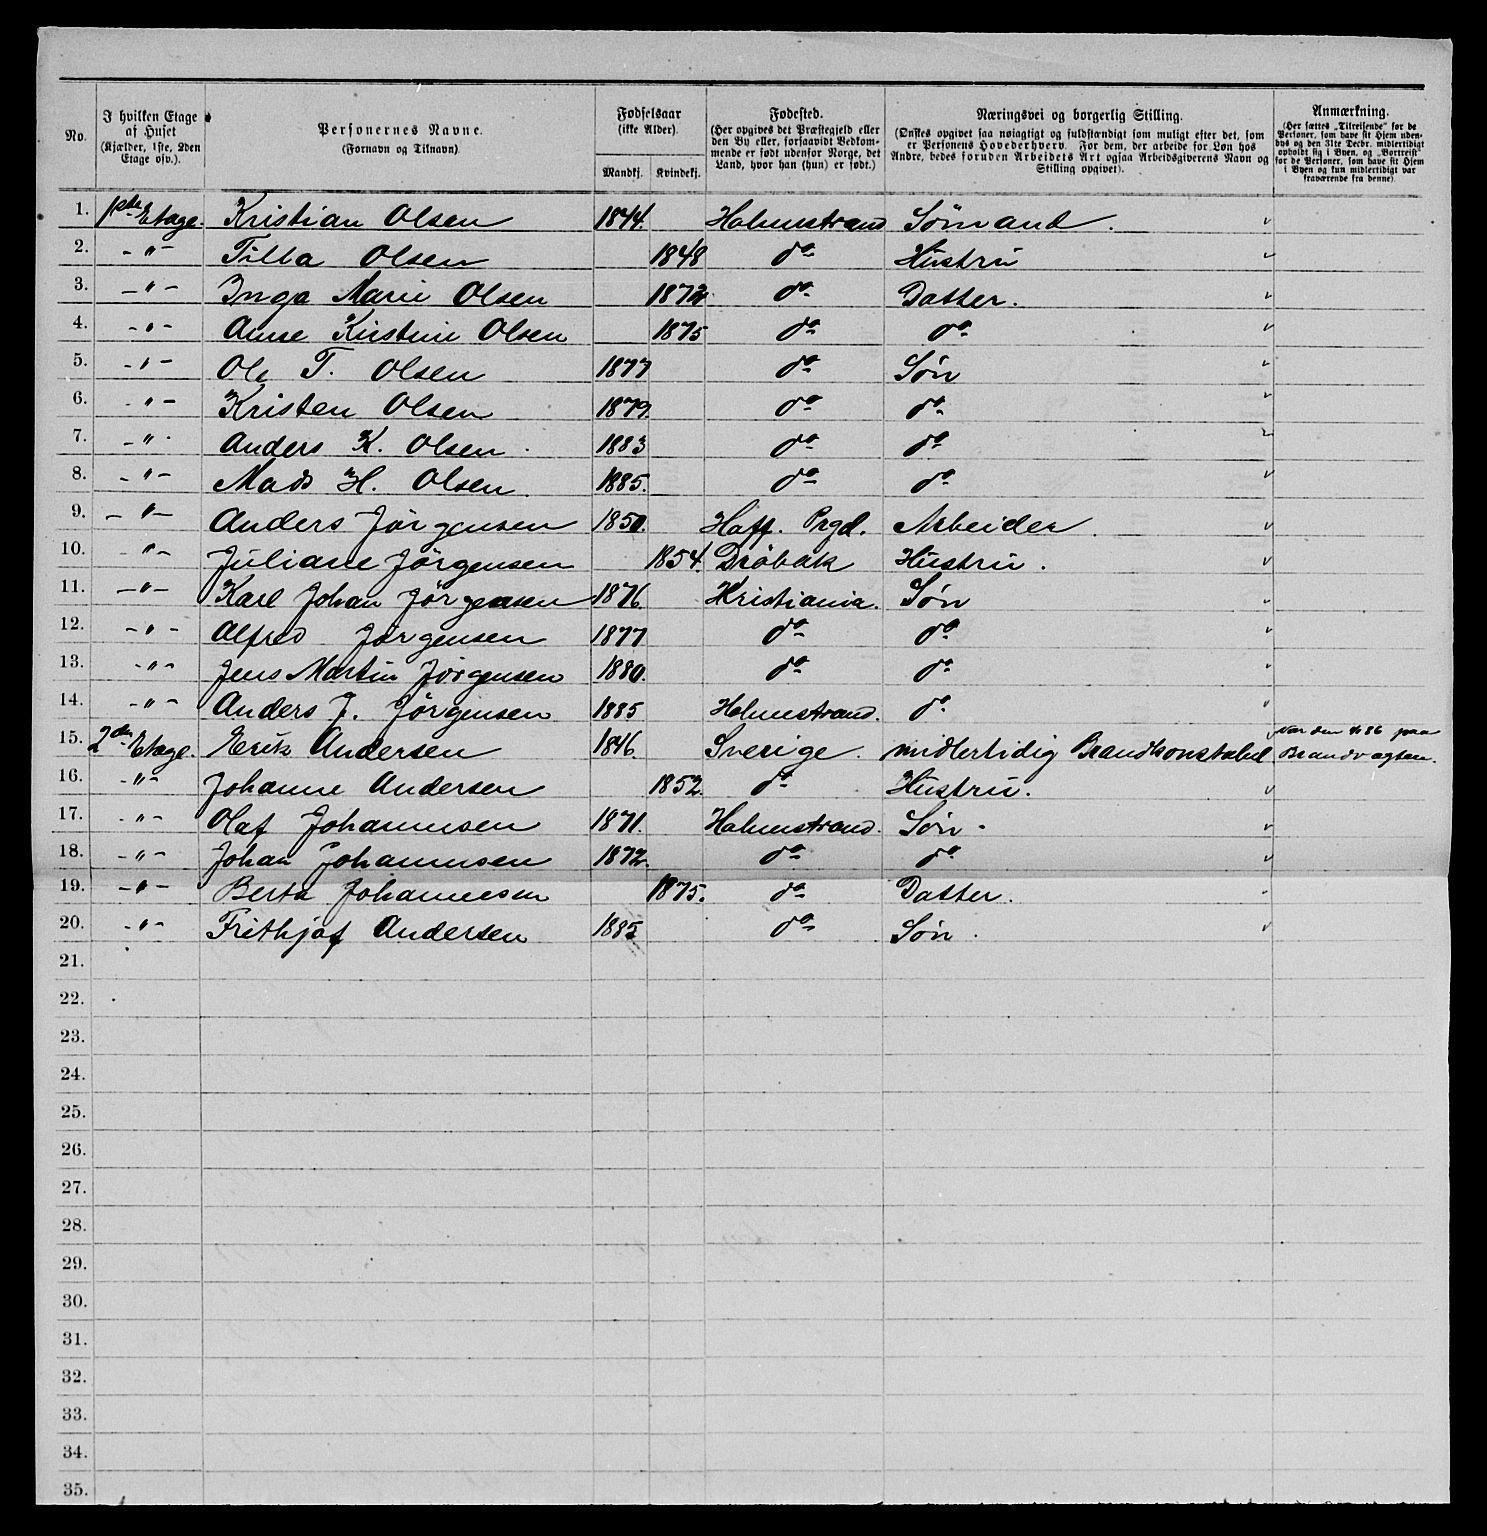 No. I hvilken Etage af Huset (Kjælder, 1ste, 2den Etage osv.). Personernes Navne. (Fornavn og Tilnavn). Fødselsaar (ikke Alder). Mandkj. Kvindekj. Fødested. (Her opgives det Præstegjeld eller den By eller, forsaavidt Vedkommende er født udenfor Norge, det Land, hvor han (hun) er født.) Næringsvei og borgerlig Stilling. (Ønskes opgivet saa nøiagtigt og fuldstændigt som muligt efter det, som er Personens Hovederhverv. For dem, der arbeide for Løn hos Andre, bedes foruden Arbeidets Art ogsaa Arbeidsgiverens Navn og Stilling opgivet). Anmærkning. (Her sættes „Tilreisende" for de Personer, som have sit Hjem udenbys og den 31te Decbr. midlertidigt opholdt sig i Byen, og „Bortreist" for de Personer, som have sit Hjem i Byen og kun midlertidigt var fraværende fra denne).
1. 1ste Etage. Kristian Olsen 1844. Holmestrand Sømand.
2. -"- Tilla Olsen 1848 do Hustru
3. -"- Inga Marie Olsen 1872 do Datter.
4. -"- Anne Kristine Olsen 1875 do do
5. -"- Ole T. Olsen 1877 do Søn
6. -"- Kristen Olsen 1879. do do
7. -"- Anders K. Olsen. 1883 do do
8. -"- Mads H. Olsen. 1885. do do
9. -"- Anders Jørgensen 1850. Hoff. Prgd. Arbeider.
10. -"- Juliane Jørgensen 1854. Drøbak Hustru.
11. -"- Karl Johan Jörgensen 1876. Kristiania. Søn
12. -"- Alfred Jørgensen 1877 do do
13. -"- Jens Martin Jørgensen 1880. do do
14. -"- Anders J. Jörgensen 1885 Holmestrand. do
15. 2den Etage. Erik Andersen 1846. Sverige. midlertidig Brandkonstabel Var den 1/1 86 paa Brandvagten.
16. -"- Johanne Andersen 1852. do Hustru.
17. -"- Olaf Johannesen 1871. Holmestrand. Søn.
18. -"- Johan Johannesen 1872. do do
19. -"- Berta Johannesen 1875. do Datter.
20. -"- Frithjof Andersen 1885 do Søn.
21.
22.
23.
24.
25.
26.
27.
28.
29.
30.
31.
32.
33.
34.
35.